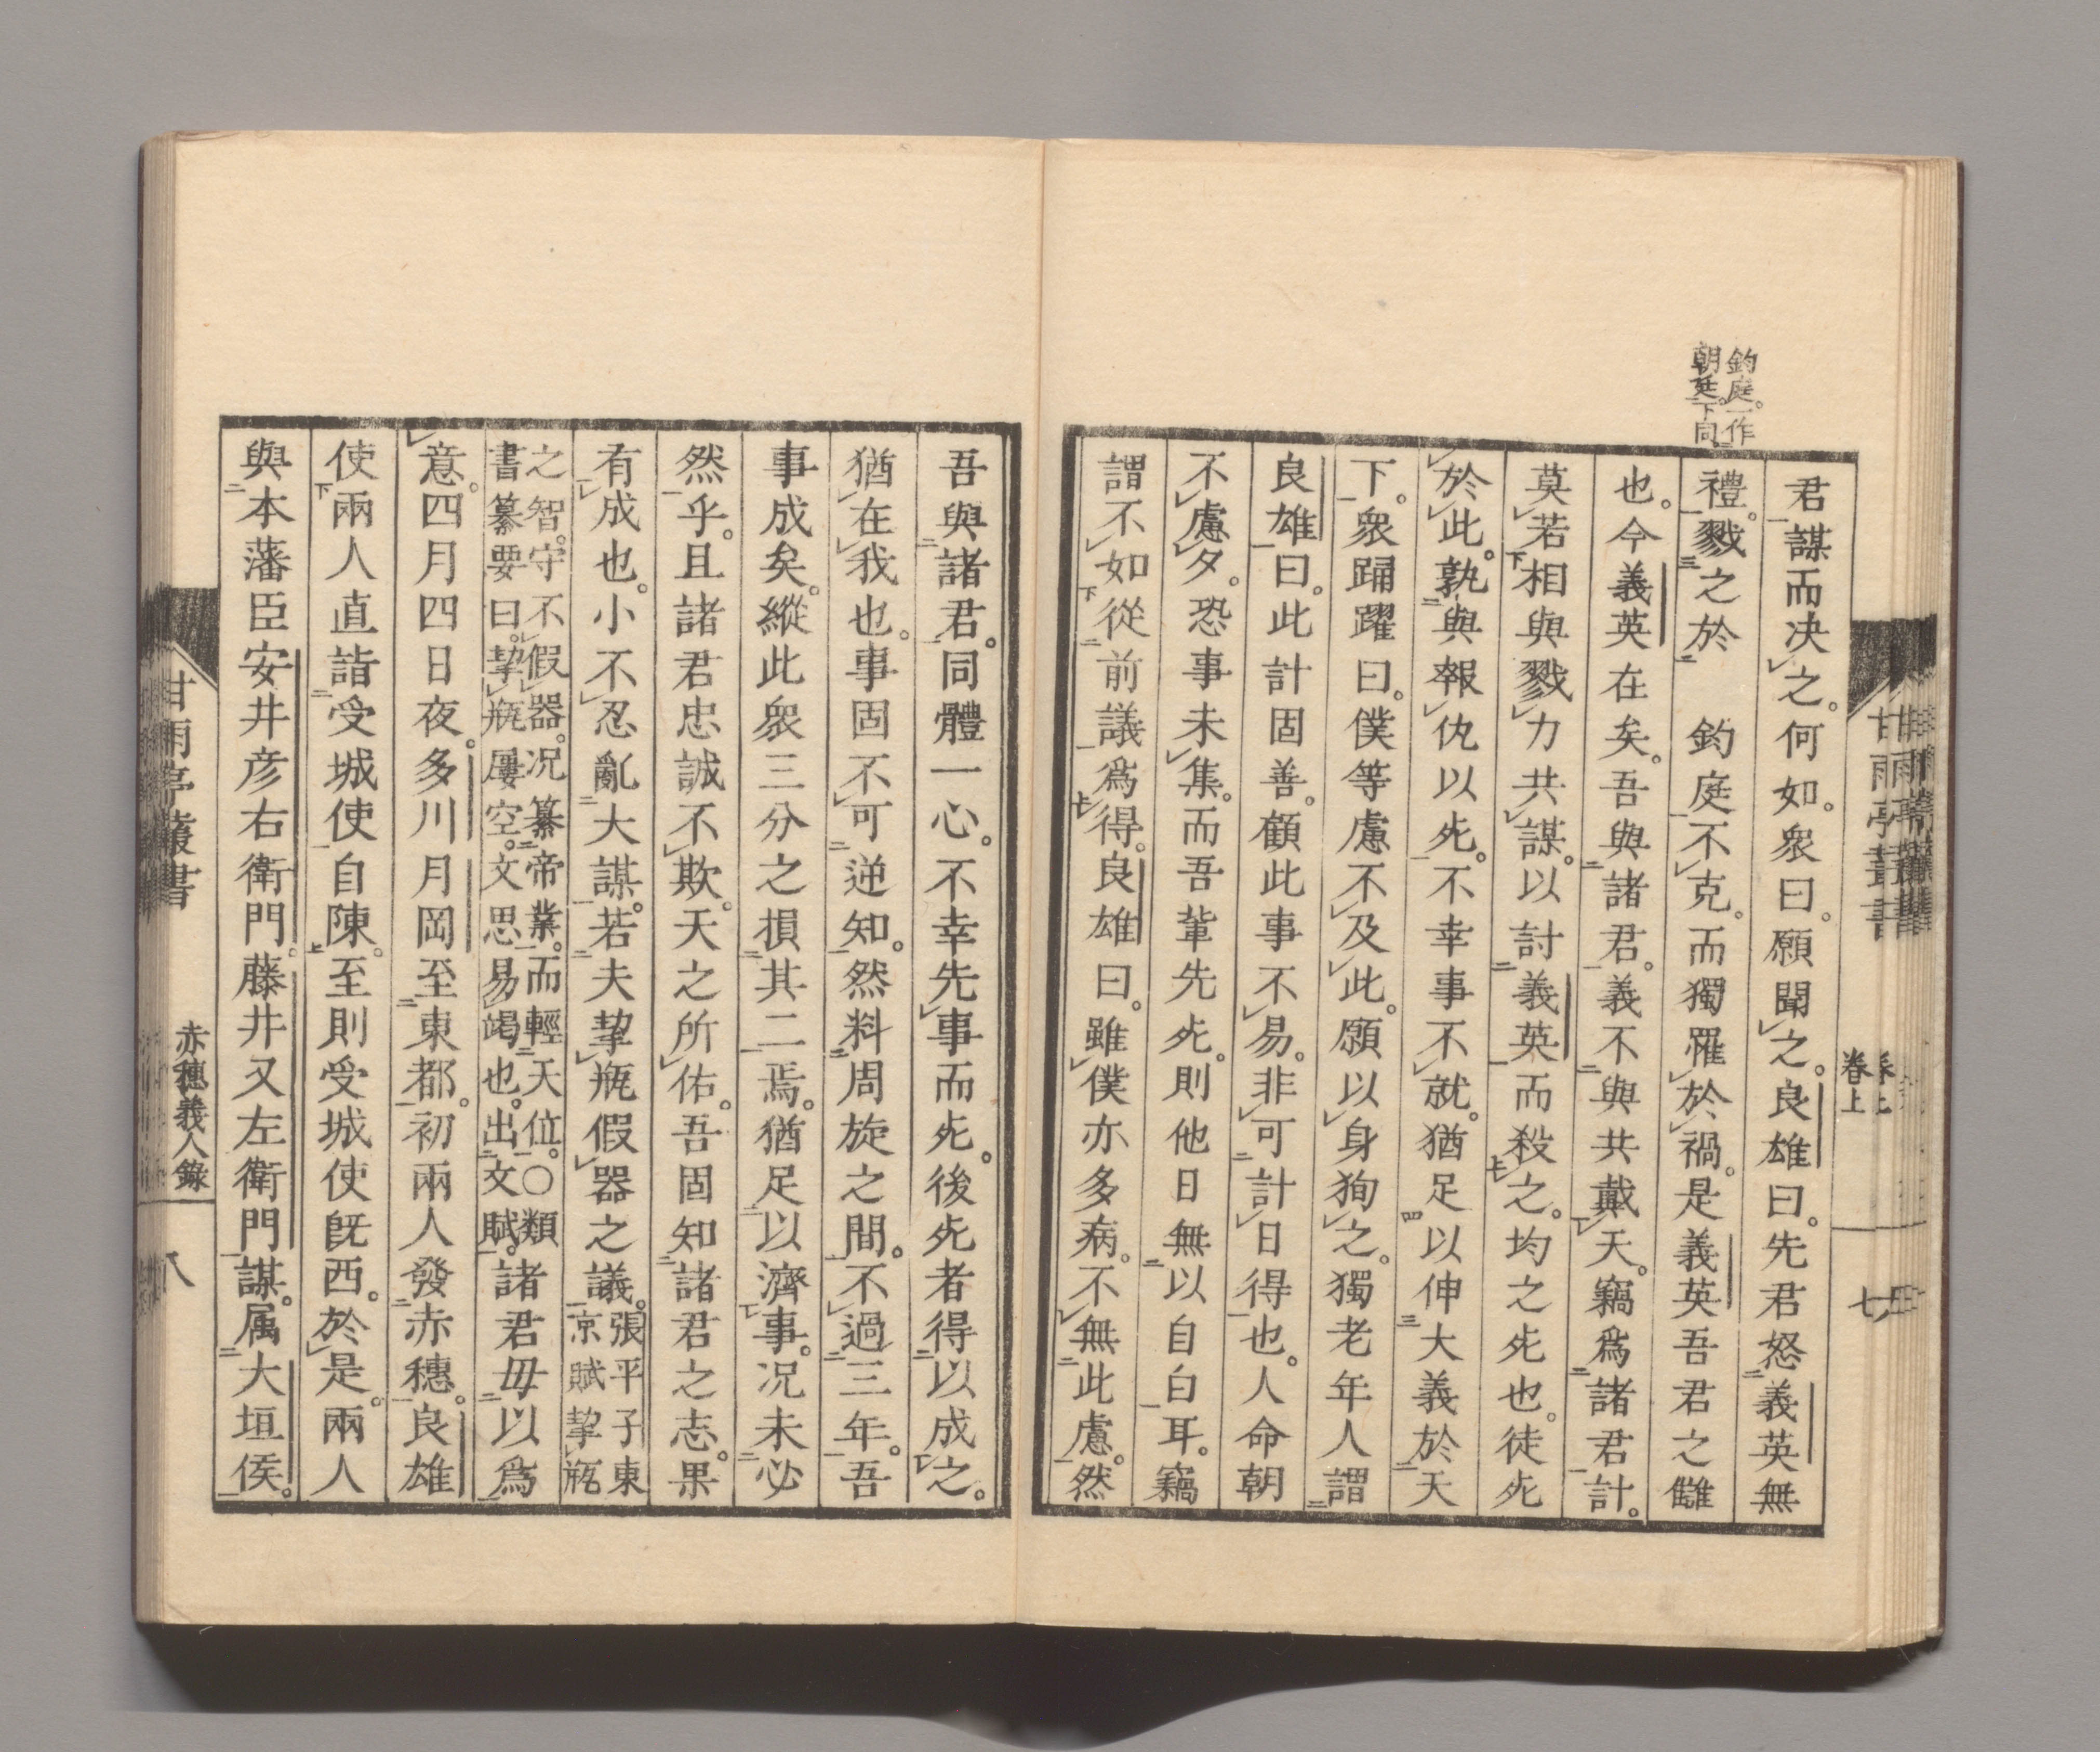 釣庭。一作
朝廷。下同
君謀而決之。何如。衆曰。願聞之。良雄曰。先君怒義英無
禮。戮之於　釣庭不克。而獨罹於禍。是義英吾君之讎
也。今義英在矣。吾與諸君。義不與共戴天。竊爲諸君計。
莫若相與戮力共謀。以討義英而殺之。均之死也。徒死
於此。孰與報仇以死。不幸事不就。猶足以伸大義於天
下。衆踊躍曰。僕等慮不及此。願以身狥之。獨老年人謂
良雄曰。此計固善。顧此事不易。非可計日得也。人命朝
不慮夕。恐事未集。而吾輩先死。則他日無以自白耳。竊
謂不如從前議爲得。良雄曰。雖僕亦多病。不無此慮。然
甘雨亭叢書
卷上
七
吾與諸君。同體一心。不幸先事而死。後死者得以成之。
猶在我也。事固不可逆知。然料周旋之間。不過三年。吾
事成矣。縱此衆三分之損其二焉。猶足以濟事。况未必
然乎。且諸君忠誠不欺。天之所佑。吾固知諸君之志。果
有成也。小不忍亂大謀。若夫挈瓶假器之議。張平子東
京賦挈瓶
之智。守不假器。况纂帝業。而輕天位。○類
書纂要曰。挈瓶屢空。文思易竭也。出文賦。諸君毋以爲
意。四月四日夜。多川月岡至東都。初兩人發赤穗。良雄
使兩人直詣受城使自陳。至則受城使既西。於是。兩人
與本藩臣安井彦右衛門。藤井又左衛門謀。属大垣侯。
甘雨亭叢書
赤穗義人錄
八